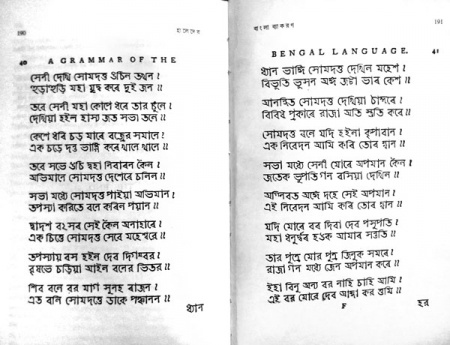 190
হালেদের
40 A GRAMMAR OF THE
সেনী দেখি সোমদত্ত উচিন তখন।
হুড়াহুড়ি মহা যুদ্ধ করে দুই জন॥
তবে সেনী মহা কোপে ধরে তার চুলে।
দেখিয়া হইল হাস্য জত সভা তলে॥
কেশে ধরি চড় মারে বজ্রের সমান।
এক চড়ে দন্ত ভাঙ্গি করে খানে খানে॥
তবে সভে উচি দ্বন্দ্ব নিবারন কৈল।
অভিমানে সোমদত্ত দেশেরে চলিল॥
সভা মধ্যে সোমদত্ত পাইয়া অভিমান।
তপস্যা করিতে বনে করিল পয়ান॥
দ্বাদশ বৎসর সেই কৈল অনাহারে।
এক চিত্তে সোমদত্ত সেবে মহেশ্বরে॥
তপস্যায় বস হইল দেব দিগাম্বর।
বৃষভে চড়িয়া আইল বনের ভিতর॥
শিব বলে বর মাগ সুনহ রাজন।
এত বলি সোমদত্তে ডাকে পঞ্চানন॥
ধ্যান
191
বাংলা ব্যাকরণ
BENGAL LANGUAGE. 41
ধ্যান ভাঙ্গি সোমদত্ত দেখিল মহেশ।
বিভূতি ভূসন অঙ্গ জটা ভার কেশ॥
আনন্দিত সোমদত্ত দেখিয়া চান্দরে।
বিবিধ প্রকারে রাজা অতি স্তুতি করে॥
সোমদত্ত বলে যদি হইলা কৃপাবান।
এক নিবেদন আমি করি তোর স্থান॥
সভা মধ্যে সেনী মোরে অপমান কৈল।
জতেক ভূপতি গন বসিয়া দেখিল॥
অগ্নিবত অঙ্গ দহে সেই অপমান।
এই নিবেদন আমি করি তোর স্থান॥
যদি মোরে বর দিবা দেব পসুপতি।
মহা ধনুর্দ্ধর হওক আমার সন্ততি॥
তার পুত্রে মোর পুত্র জিনুক সমরে।
রাজা গন মধ্যে জেন অপমান করে॥
ইহা বিনু অন্য বর নাহি চাহি আমি।
এই বর মোরে দেব আজ্ঞা কর তুমি॥
F
হর